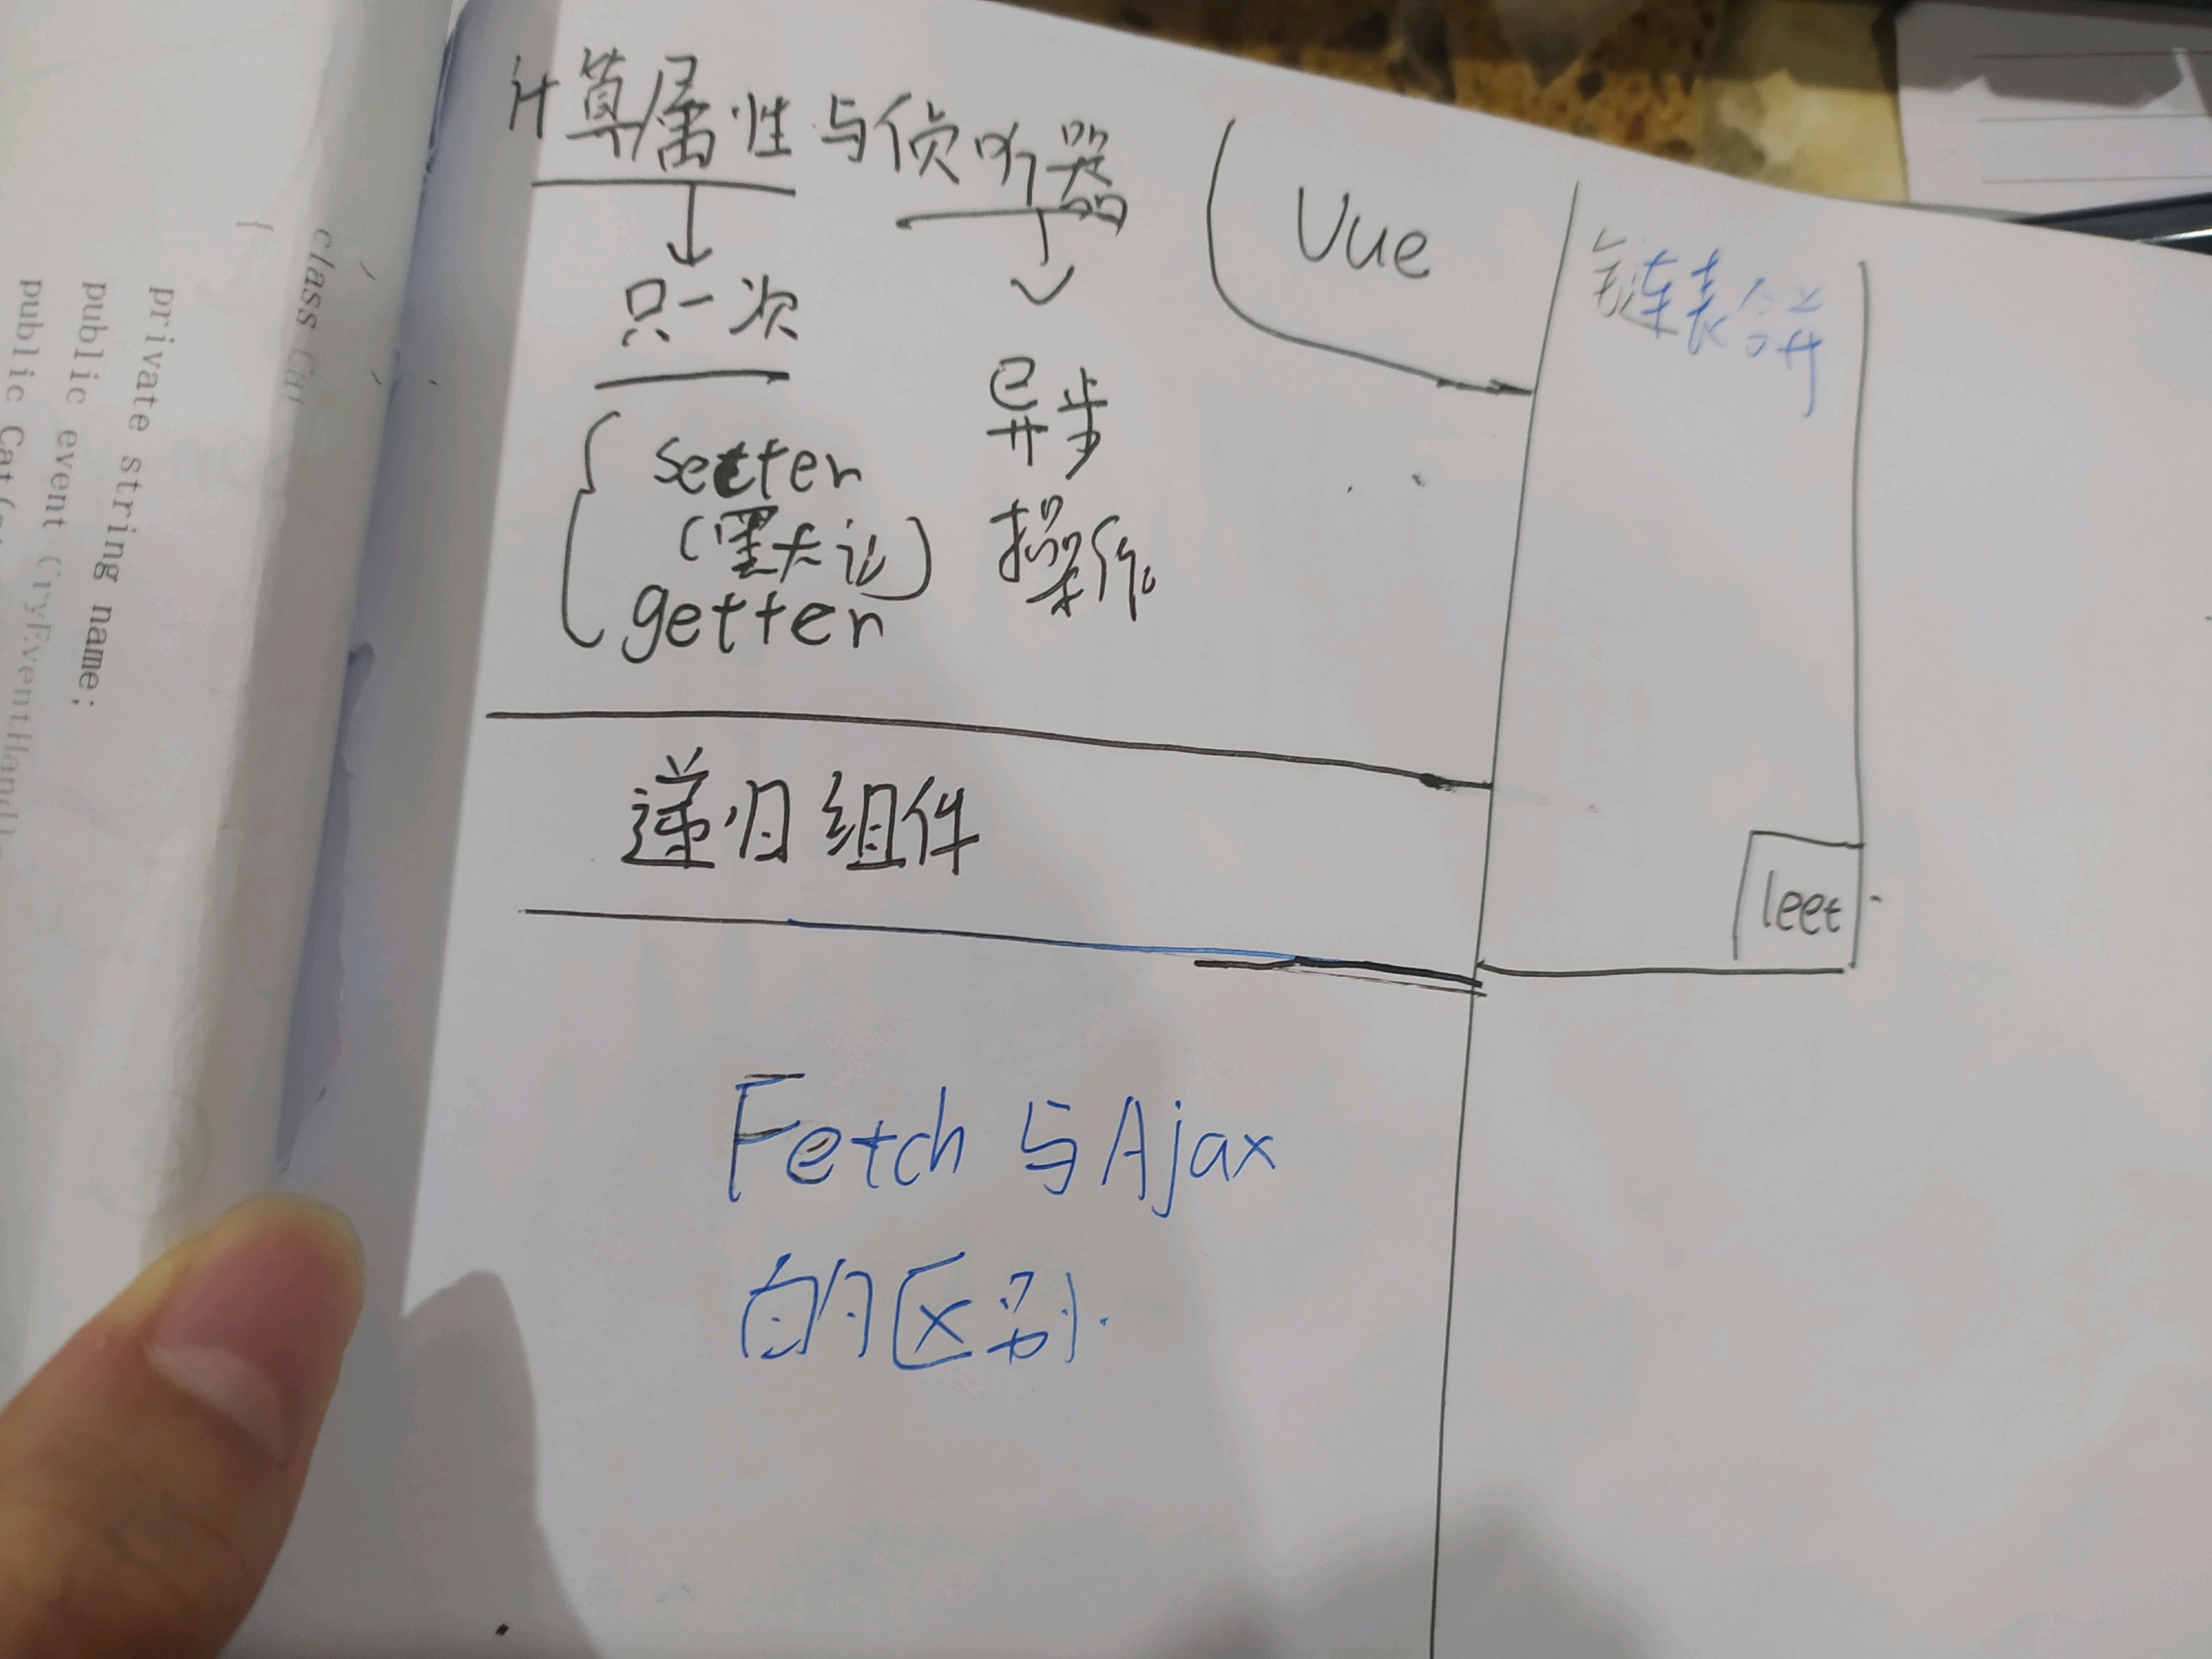 计算属性与侦听器
只一次
setter
(默认)
getter
异步
操作
Vue
链表合并
leet
递归组件
Fetch 与 Ajax
的区别.
class Cat
{
private string name;
public event CryEventHandl
public Cat(